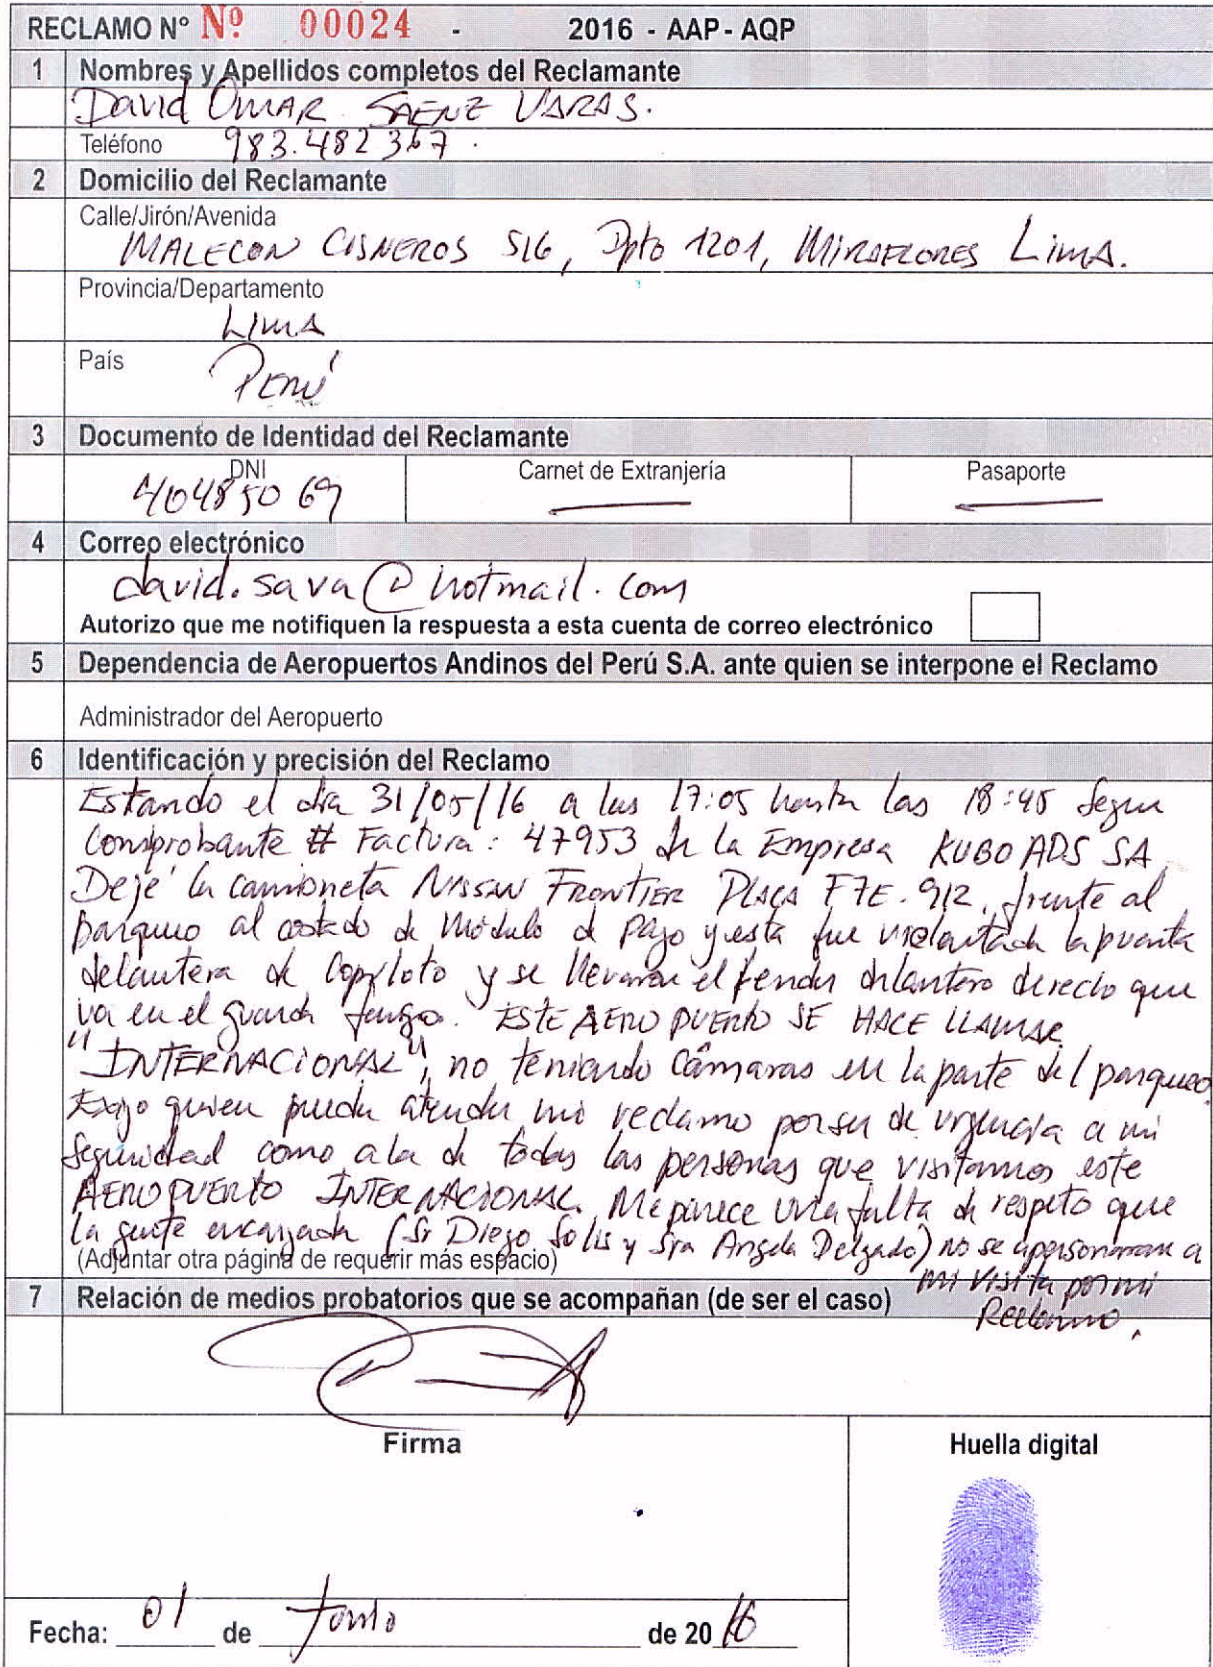 RECLAMO N° Nº 00024 - 2016 - AAP - AQP
1 Nombres y Apellidos completos del Reclamante
David OMAR SAENZ VARAS.
Teléfono 983.482367.
2 Domicilio del Reclamante
Calle/Jirón/Avenida
MALECON CISNEROS 516, Dpto 1201, MIRAFLORES LIMA.
Provincia/Departamento
LIMA
País
PERÚ
3 Documento de Identidad del Reclamante
DNI Carnet de Extranjería Pasaporte
40485069
4 Correo electrónico
david.sava@hotmail.com
Autorizo que me notifiquen la respuesta a esta cuenta de correo electrónico
5 Dependencia de Aeropuertos Andinos del Perú S.A. ante quien se interpone el Reclamo
Administrador del Aeropuerto
6 Identificación y precisión del Reclamo
Estando el dia 31/05/16 a las 17:05 hasta las 18:45 segun
Comprobante # Factura: 47953 de la Empresa KUBO ADS SA
Dejé la camioneta NISSAN FRONTIER PLACA F7E.912, frente al
parqueo al costado de módulo de pago y esta fue violentada la puerta
delantera de copiloto y se llevaron el fender delantero derecho que
va en el guarda fango. ESTE AEROPUERTO SE HACE LLAMAR
"INTERNACIONAL", no teniendo cámaras en la parte del parqueo.
Exijo quien pueda atender mi reclamo por ser de urgencia a mi
seguridad como a la de todas las personas que visitamos este
AEROPUERTO INTERNACIONAL. Me parece una falta de respeto que
la gente encargada (Sr Diego Solis y Sra Angela Delgado) no se apersonaran a
mi visita por mi
Reclamo.
(Adjuntar otra página de requerir más espacio)
7 Relación de medios probatorios que se acompañan (de ser el caso)
Firma Huella digital
Fecha: 01 de Junio de 2016